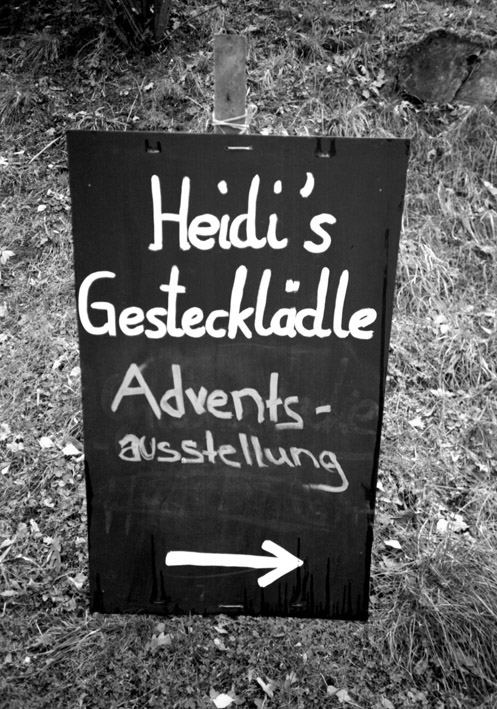 Heidi's
Gestecklädle
Advents-
ausstellung